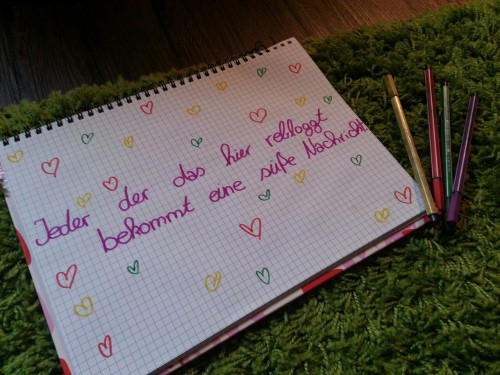 Jeder der das hier rebloggt
bekommt eine süße Nachricht